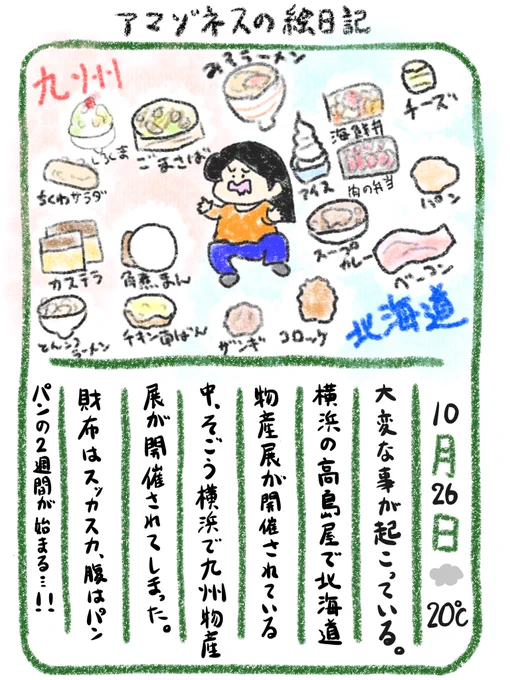 アマゾネスの絵日記
九州
みそラーメン
チーズ
しろくま
ごまさば
海鮮弁
アイス
肉の弁当
パン
ちくわサラダ
スープカレー
ベーコン
カステラ
角煮まん
とんこつラーメン
チキン南ばん
ザンギ
コロッケ
北海道
10月26日 20℃
大変な事が起こっている。
横浜の高島屋で北海道
物産展が開催されている
中、そごう横浜で九州物産
展が開催されてしまった。
財布はスッカスカ、腹はパン
パンの2週間が始まる…!!